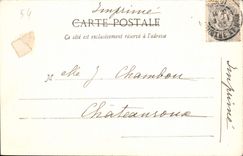 54
Imprimé
CARTE POSTALE
Ce côté est exclusivement réservé à l'adresse
Mlle J Chambon
Châteauroux
Imprimé